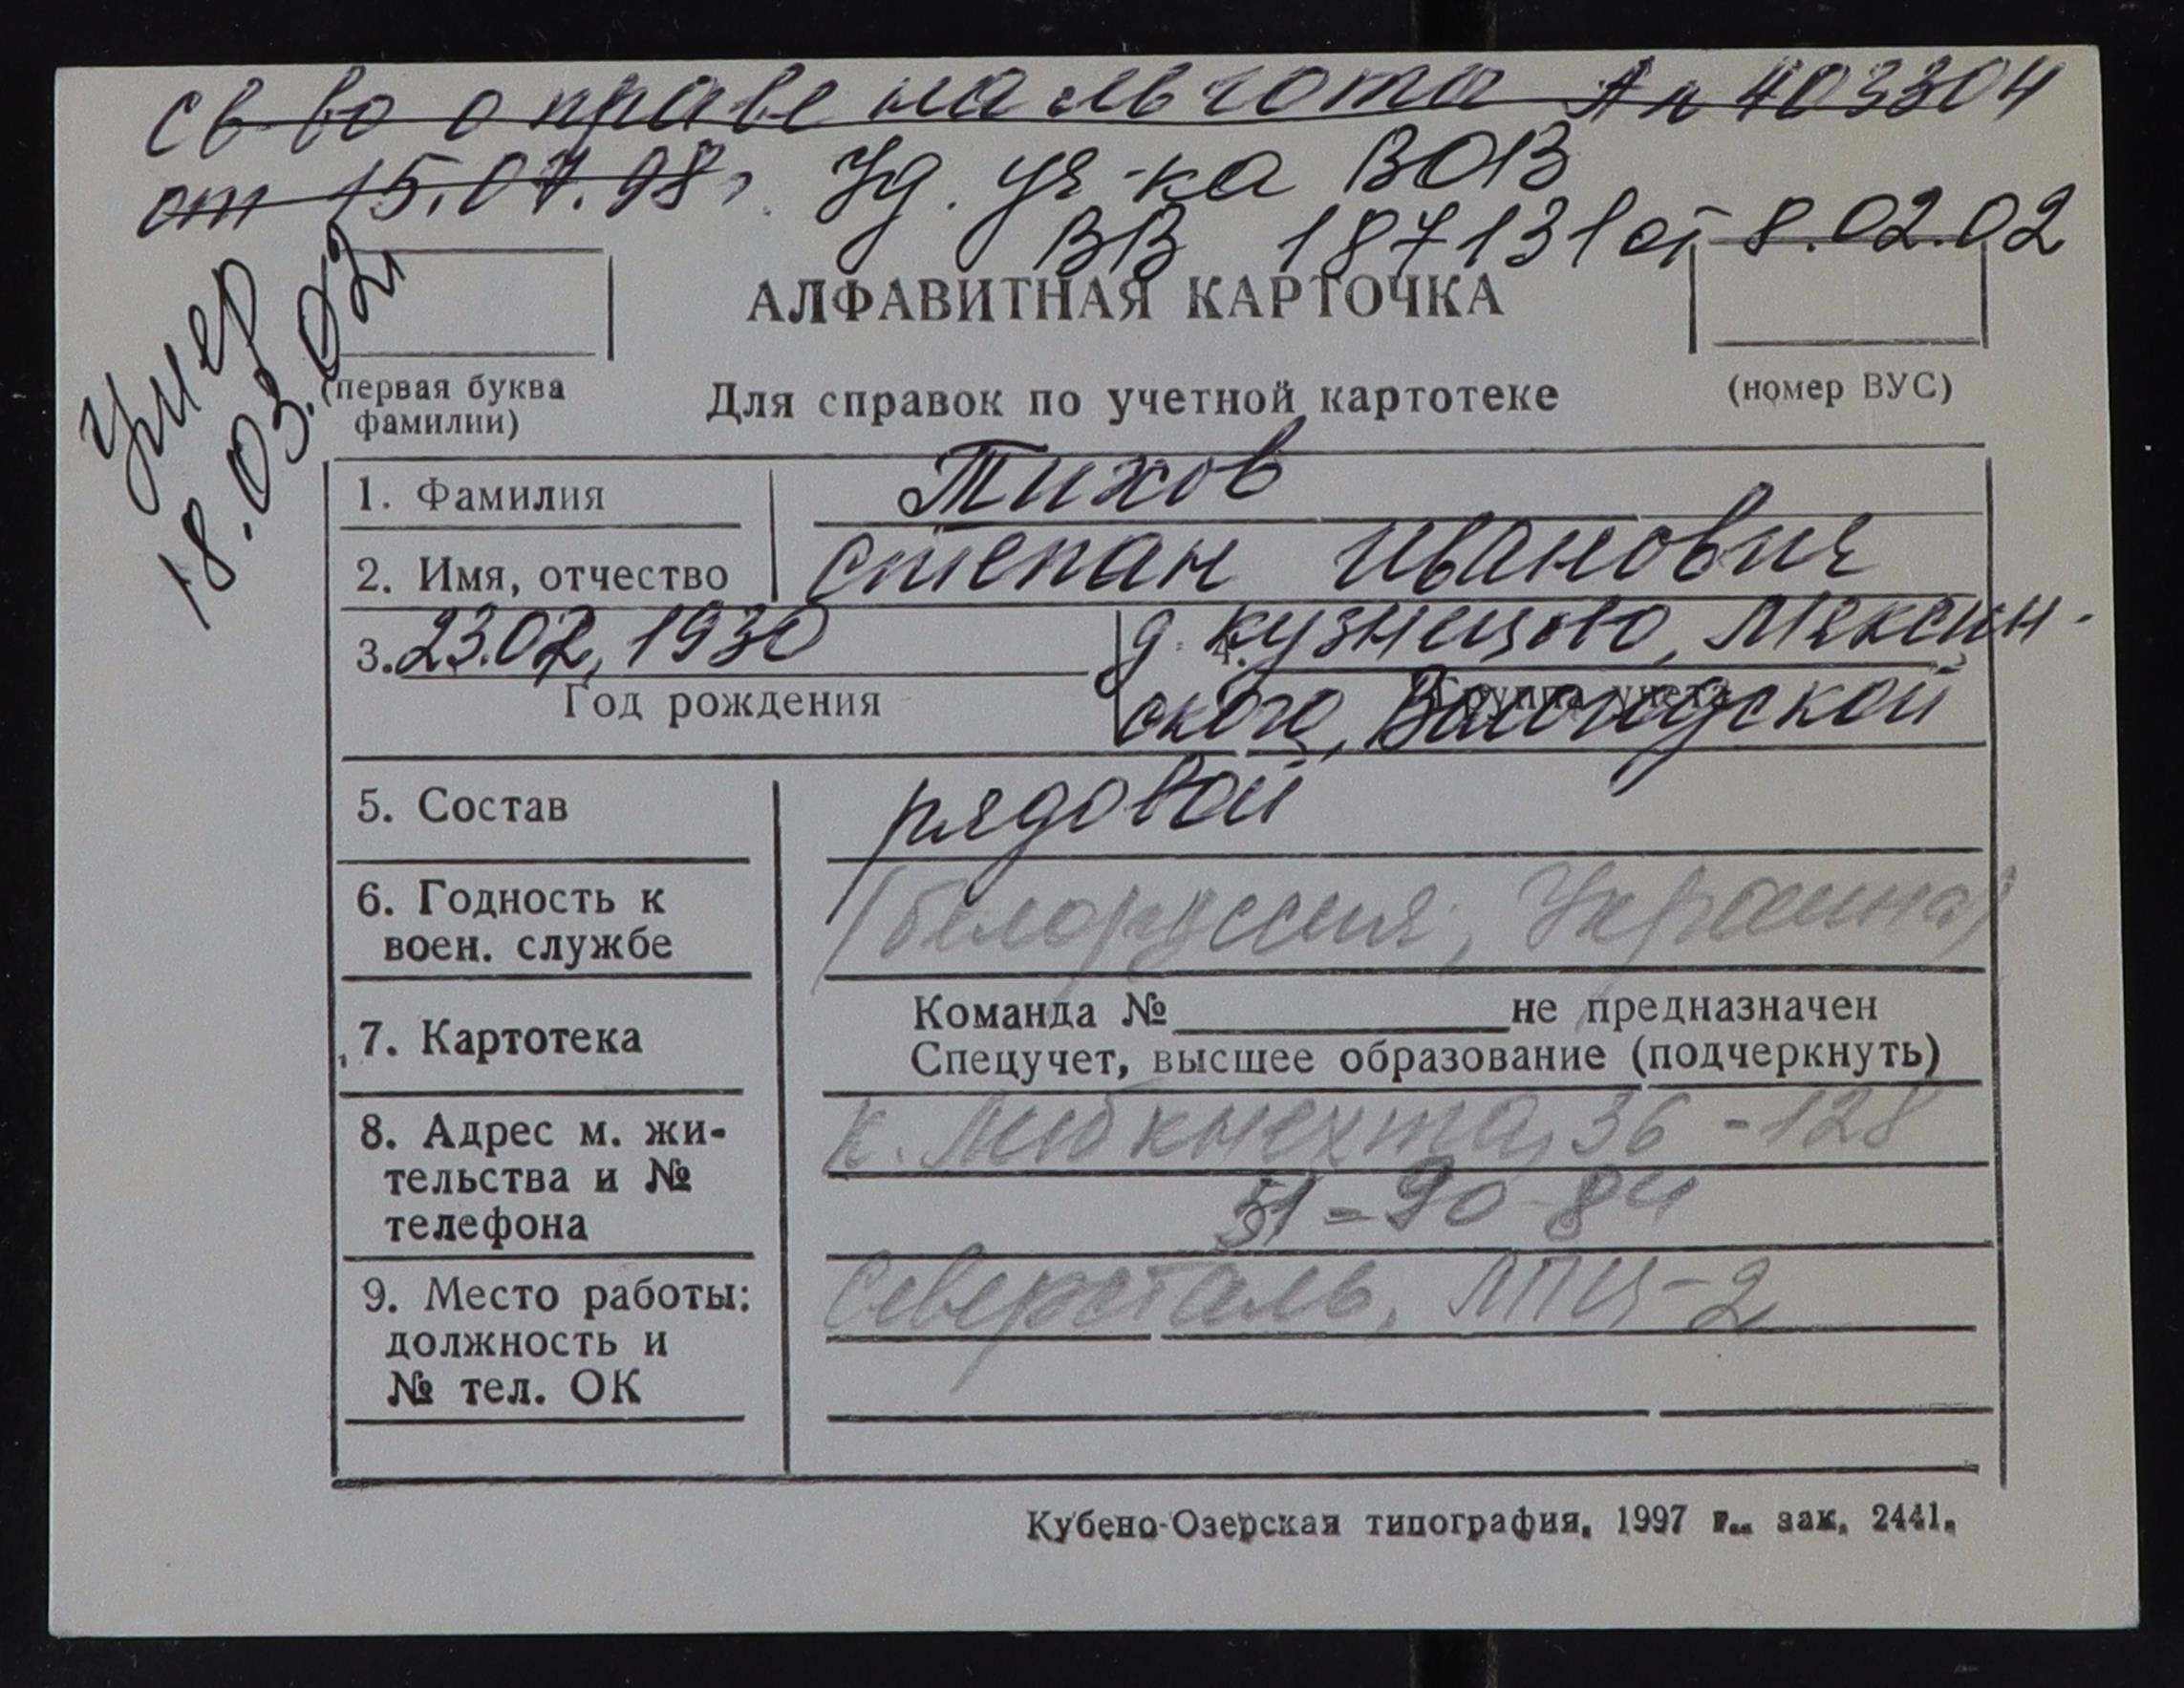 св-во о праве на льготы Ал 403304
от 15.07.98г. Уд. уч-ка ВОВ
ВВ 187131 от 8.02.02
Умер
18.03.02г.
АЛФАВИТНАЯ КАРТОЧКА
(первая буква
фамилии)
Для справок по учетной картотеке
(номер ВУС)
1. Фамилия Тихов
2. Имя, отчество Степан Иванович
3. 23.02.1930
Год рождения
4. д. Кузнецово, Мяксин-
ского, Вологодской
Группа учета
5. Состав рядовой
6. Годность к
воен. службе
(Белоруссия, Украина)
7. Картотека
Команда № не предназначен
Спецучет, высшее образование (подчеркнуть)
8. Адрес м. жи-
тельства и №
телефона
К. Либкнехта, 36-128
51-90-84
9. Место работы:
должность и
№ тел. ОК
Северсталь, ЛПЦ-2
Кубено-Озерская типография, 1997 г. зак. 2441.